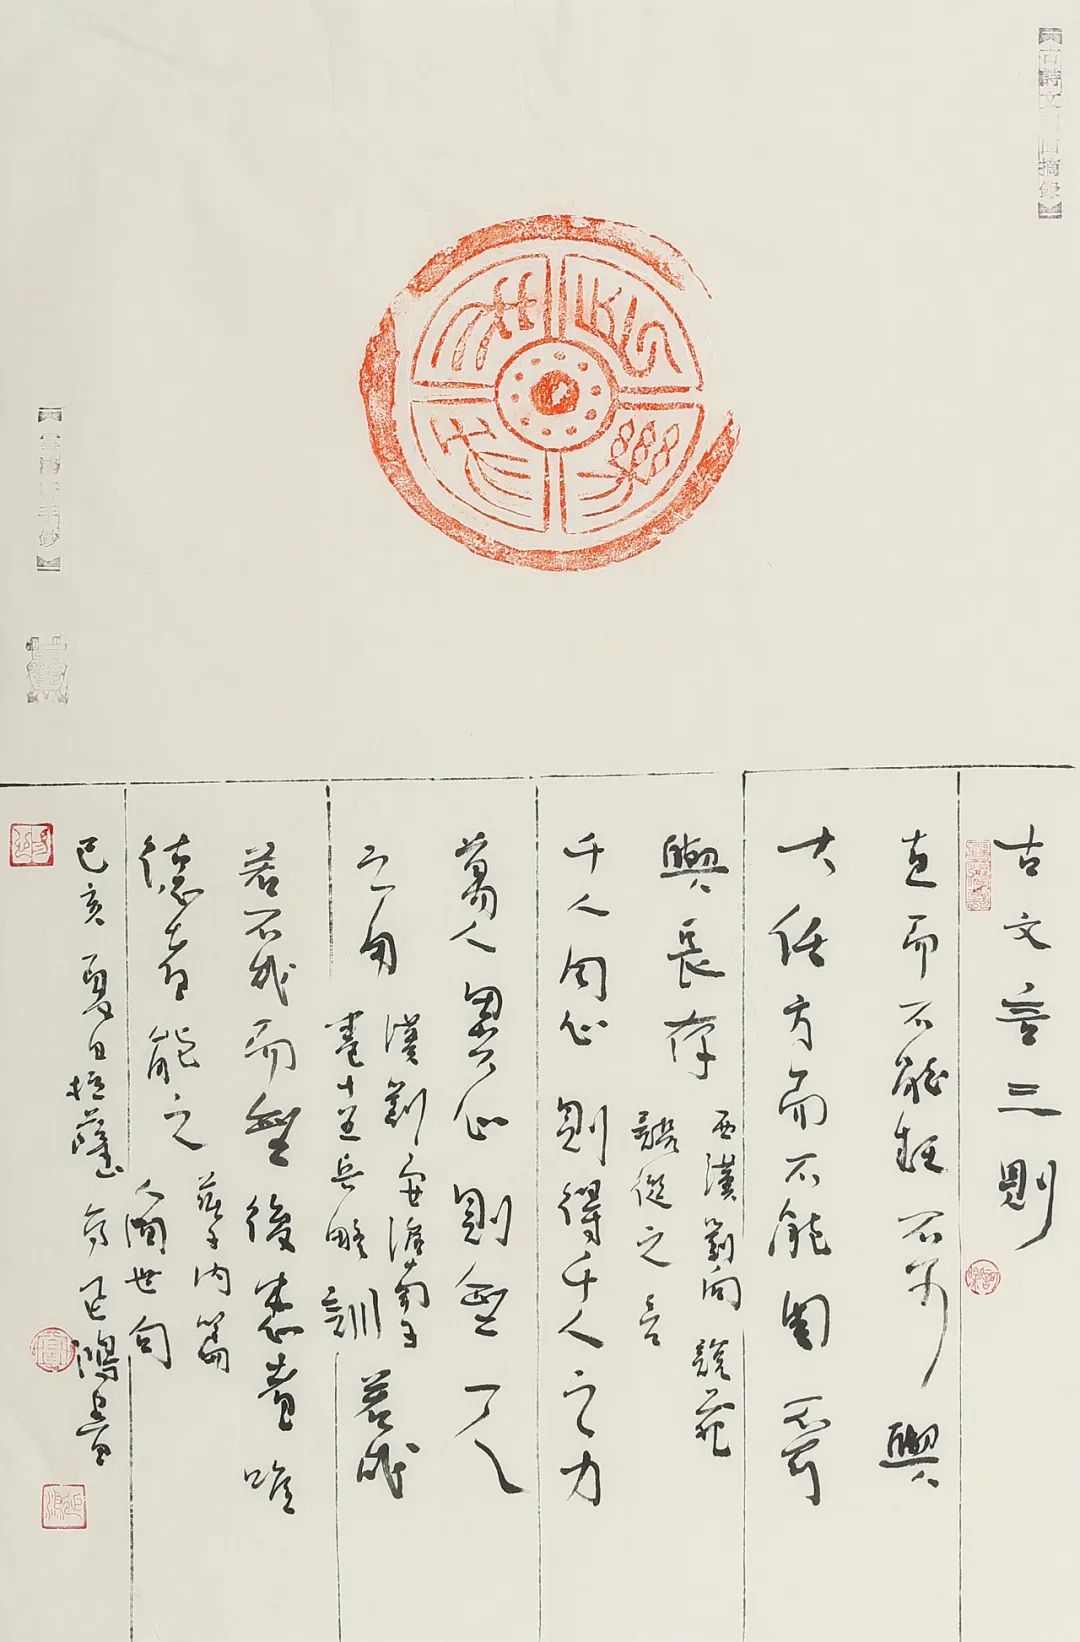 古詩文摘錄
古文言三則
直而不能枉不可與
大任方而不能圓不可
與長存
西漢劉向說苑
談從之言
千人同心則得千人之力
萬人異心則無一人
之用
漢劉安淮南子
卷十五兵略訓
若成
若不成而無後患者唯
德者能之
莊子內篇
人間世句
己亥夏日於鴻書